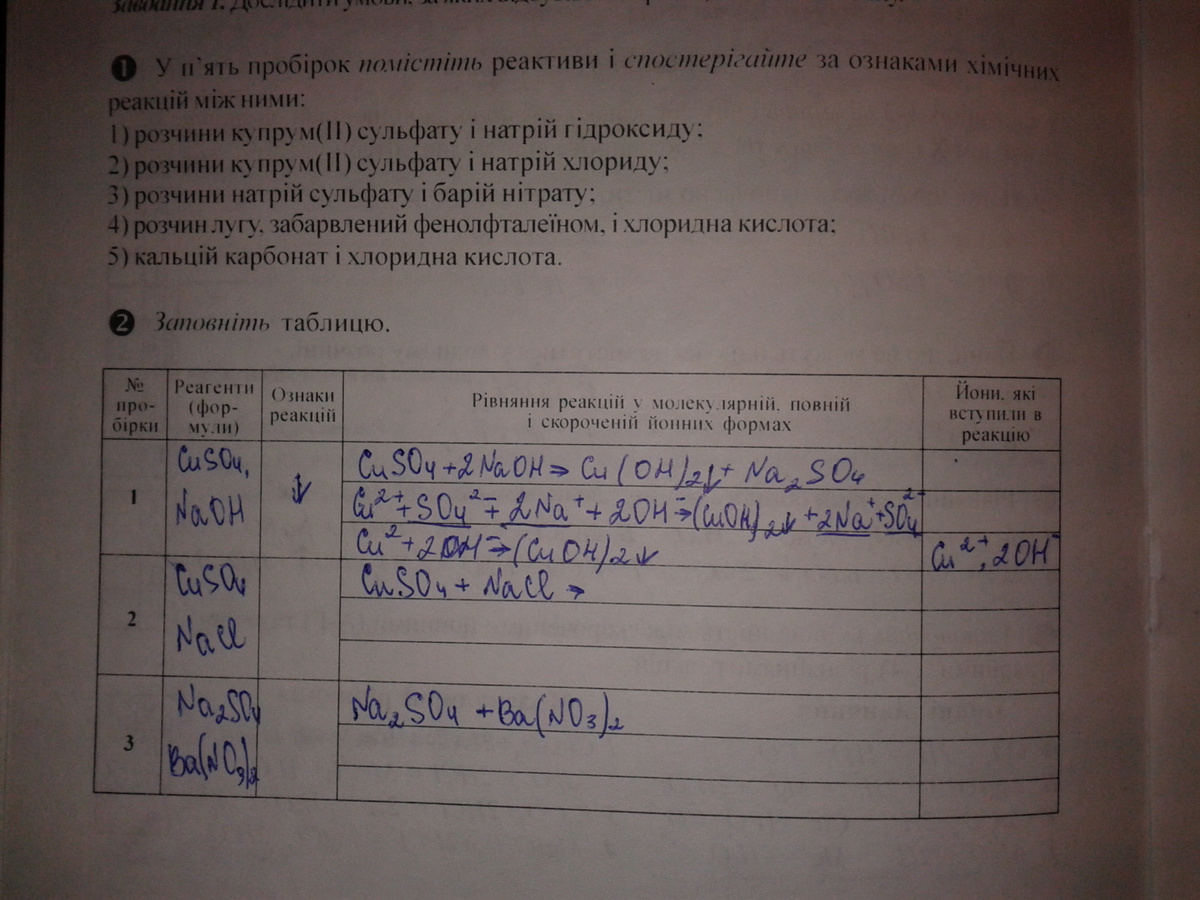 завдання 1. Дослідити умови, за яких
❶ У п'ять пробірок помістіть реактиви і спостерігайте за ознаками хімічних
реакцій між ними:
1) розчини купрум(II) сульфату і натрій гідроксиду;
2) розчини купрум(II) сульфату і натрій хлориду;
3) розчини натрій сульфату і барій нітрату;
4) розчин лугу, забарвлений фенолфталеїном, і хлоридна кислота;
5) кальцій карбонат і хлоридна кислота.
❷ Заповніть таблицю.
№ про-бірки
Реагенти (фор-мули)
Ознаки реакцій
Рівняння реакцій у молекулярній, повній
і скороченій йонних формах
Йони, які вступили в реакцію
1
CuSO4,
NaOH
↓
CuSO4 + 2NaOH → Cu(OH)2↓ + Na2SO4
Cu2+ + SO4 2- + 2Na+ + 2OH- → (CuOH)2↓ + 2Na+ + SO4 2-
Cu2+ + 2OH- → (CuOH)2↓
Cu2+, 2OH-
2
CuSO4
NaCl
CuSO4 + NaCl →
3
Na2SO4
Ba(NO3)2
Na2SO4 + Ba(NO3)2